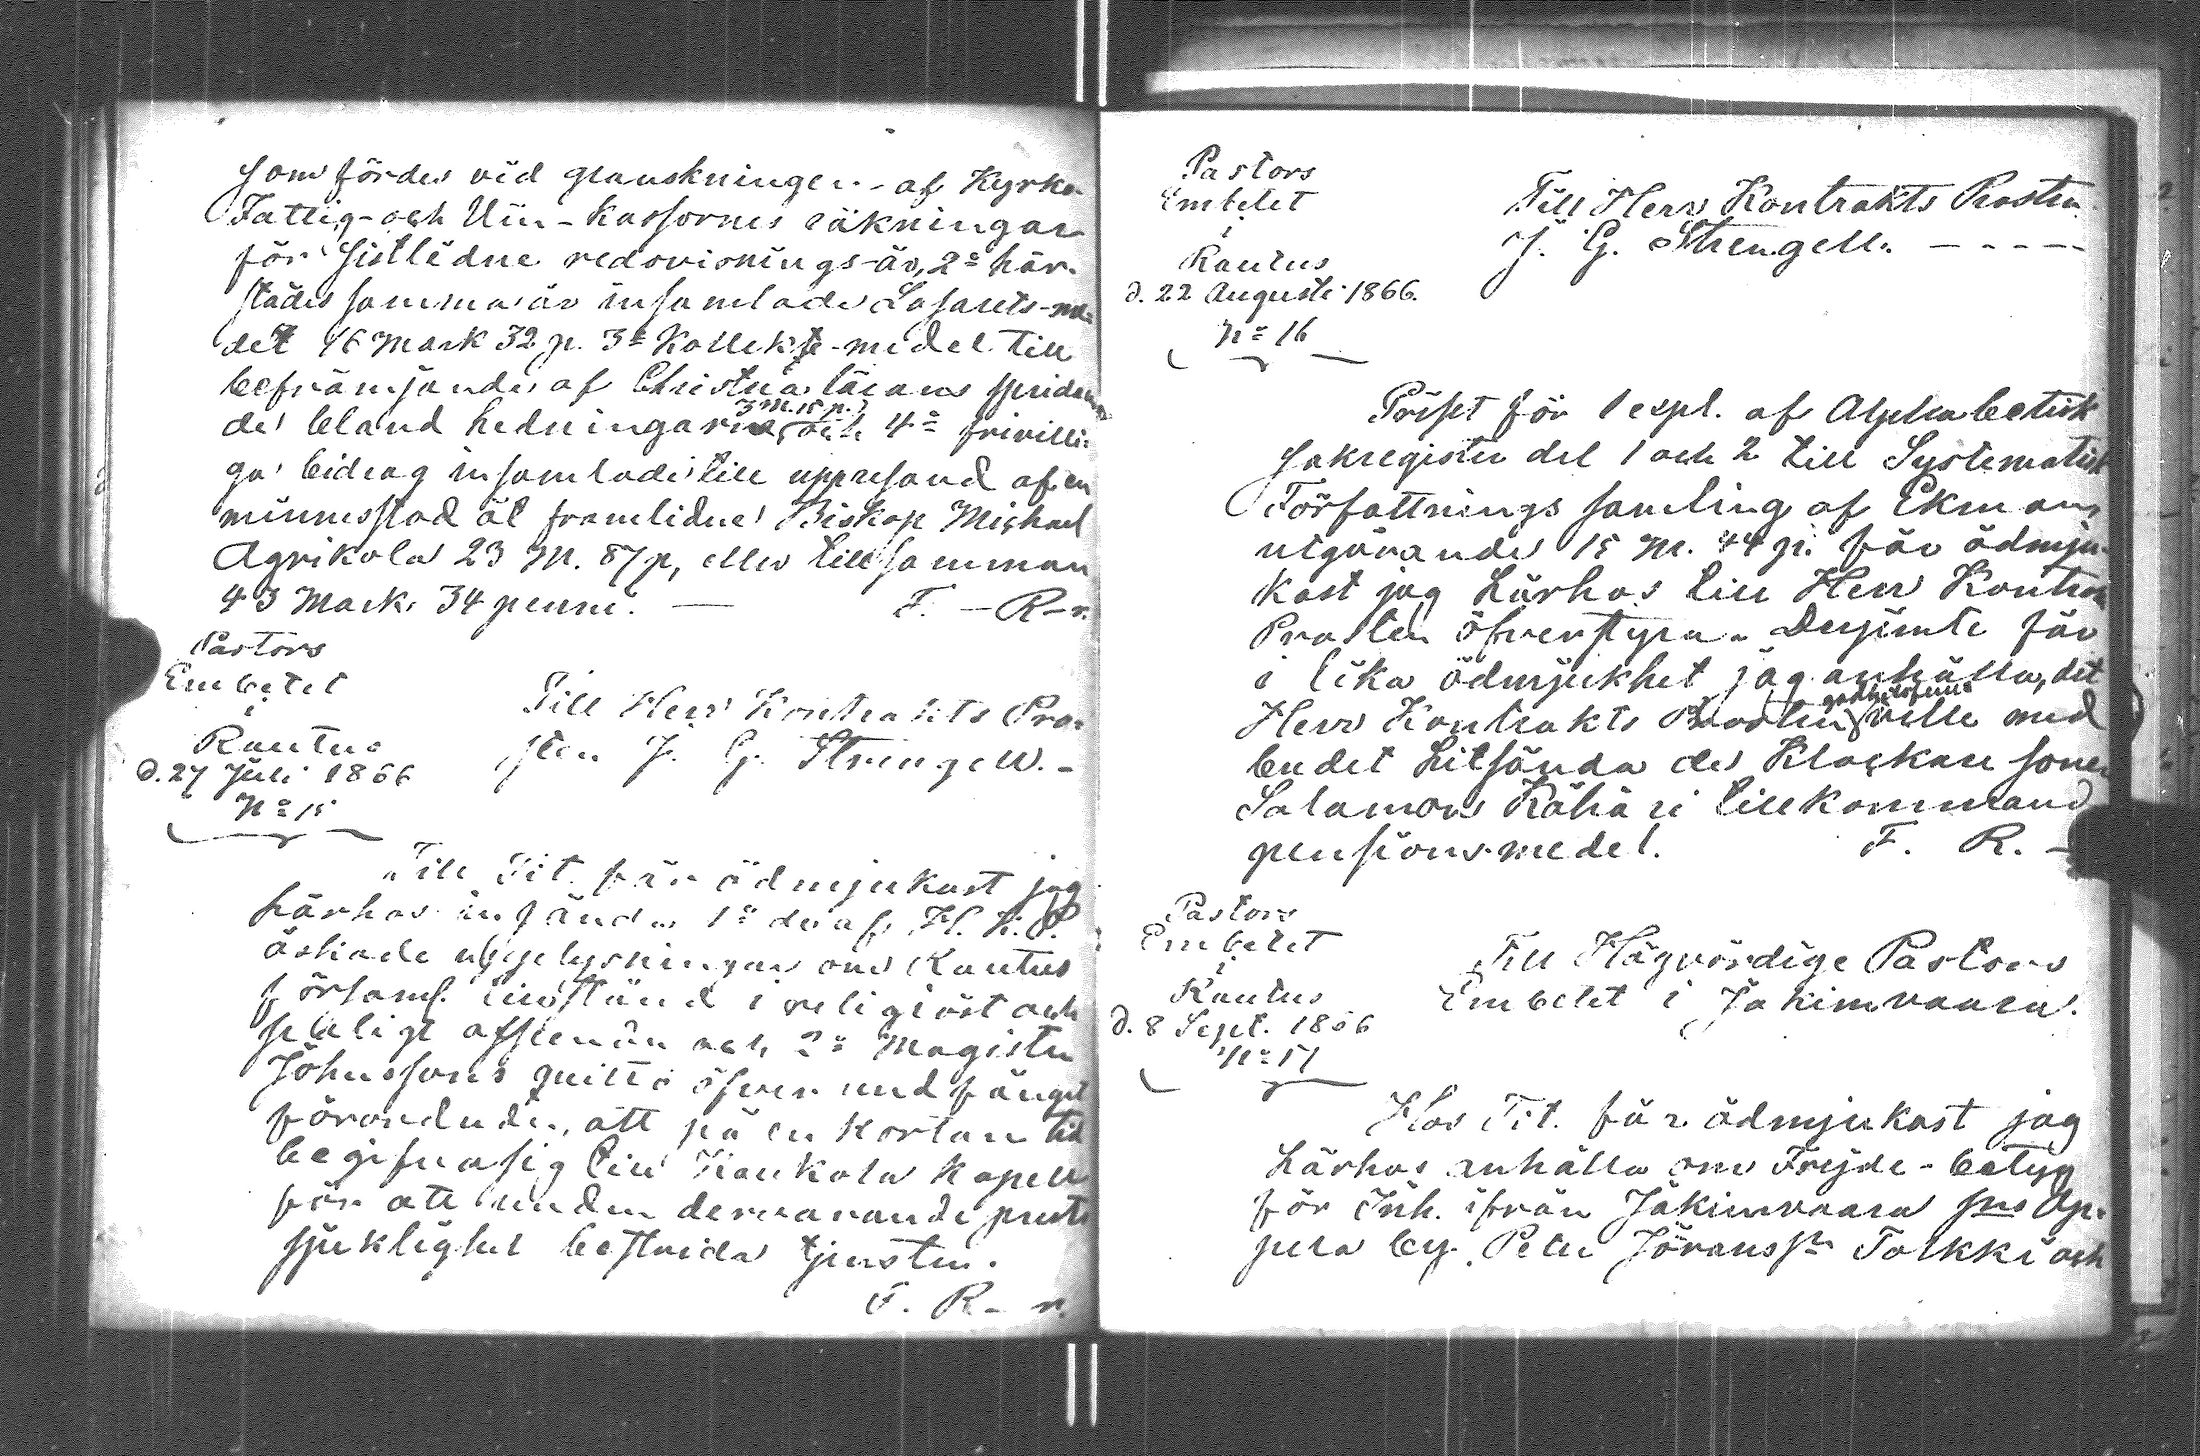 som fördes vid granskningen af Kyrko-
Fattig- och Vin-kassornes räkningar
för sistlidne redovisnings-år, 2:o här-
städes samma år insamlade Lasarets-me-
del 16 Mark 32 p. 3:o Kollekte-medel till
befrämjande af Christna lärans spridan-
de bland hedningarne, 3 M. 15 p. och 4:o frivilli-
ga bidrag insamlade till uppresand af en
minnesstod åt framlidne Biskop Michael
Agrikola 23 M. 87 p, eller tillsamman
43 Mark 34 penni. — F. — R—n.
Pastors
Embetet
i
Rautus
d. 27 Juli 1866
N:o 15
Till Herr Kontrakts Pro-
sten J. G. Strengell. -
Till Tit. får ödmjukast jag
härhos insända 1:o de af H. K. P.
äskade upplysningar om Rautus
församl. tillstånd i religiöst och
sedligt afseende och 2:o Magister
Johnssons quitto öfver undfånget
förordnande, att på en kortan tid
begifva sig till Kaukola kapell
för att under dervarande prests
sjuklighet bestrida tjensten.
F. R- n.
Pastors
Embetet
i
Rautus
d. 22 Augusti 1866.
N:o 16
Till Herr Kontrakts Prosten
J. G. Strengell. - - - - -
Priset för 1 expl. af Alphabetisk
Sakregister del 1 och 2 till Systematisk
Författnings samling af Ekman
utgörande 15 M. 44 p. får ödmju-
kast jag härhos till Herr Kontra
Prosten öfverstyra. Derjemte får
i lika ödmjukhet jag anhålla, det
Herr Kontrakts Prosten godhetsfullt ville med
budet hitsända de Klockare sonen
Salamon Kähäri tillkommand
pensionsmedel. F. R. -
Pastors
Embetet
i
Rautus
d. 8 Sept. 1866
N:o 17
Till Högvördige Pastors
Embetet i Jakimvaara.
Hos Tit. får ödmjukast jag
härhos anhålla om Frejde-betyg
för Inh. ifrån Jakimvaara sns
by Peter Göranss:n Tolkki och